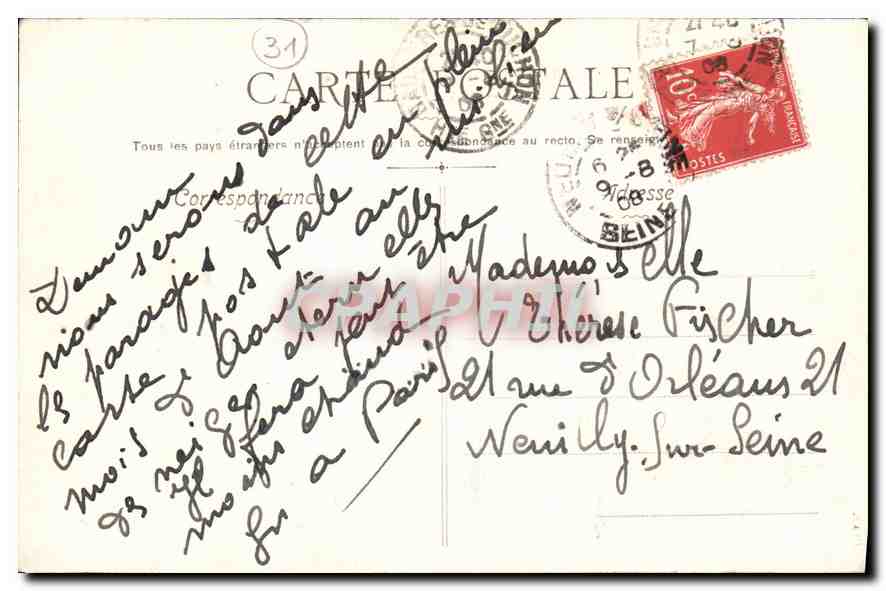 31
CARTE POSTALE
Tous les pays étrangers n'acceptent par la correspondance au recto. Se renseigner
Correspondance
Adresse
10c
POSTES
FRANÇAISE
NEUILLY
SEINE
6 - 8
08
Demain
nous serons dans
les parages de cette
carte postale en plein
mois d'Août au milieu
des neiges éternelles
Il fera peut être
moins chaud
qu'à Paris
Mademoiselle
Thérèse Fischer
21 rue d'Orléans 21
Neuilly-sur-Seine
CRAPHIL